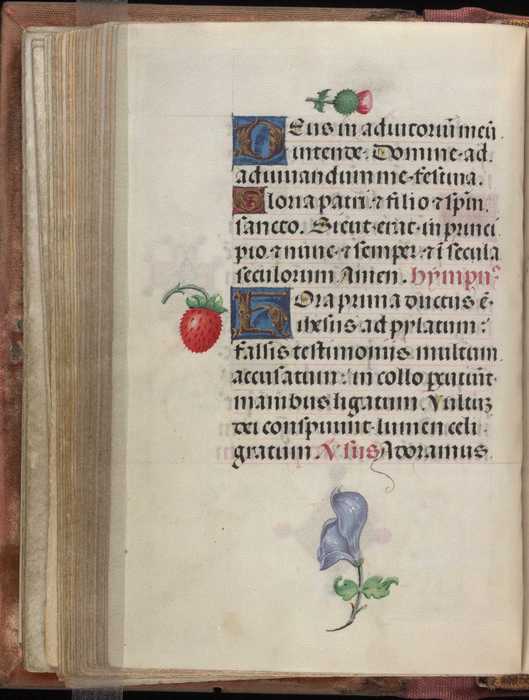 Deus in adiutoriū meū
intende. Domine ad
adiuuandum me festina.
Gloria patri ⁊ filio ⁊ spūi
sancto. Sicut erat in princi
pio ⁊ nunc ⁊ semper ⁊ ī secula
seculorum Amen. hympnꝰ
Hora prima ductus ē
ihesus ad pylatum:
falsis testimoniis multum
accusatum: in collo percutiūt
manibus ligatum Vultuʒ
dei conspuunt lumen celi
gratum Vͤrsus Adoramus